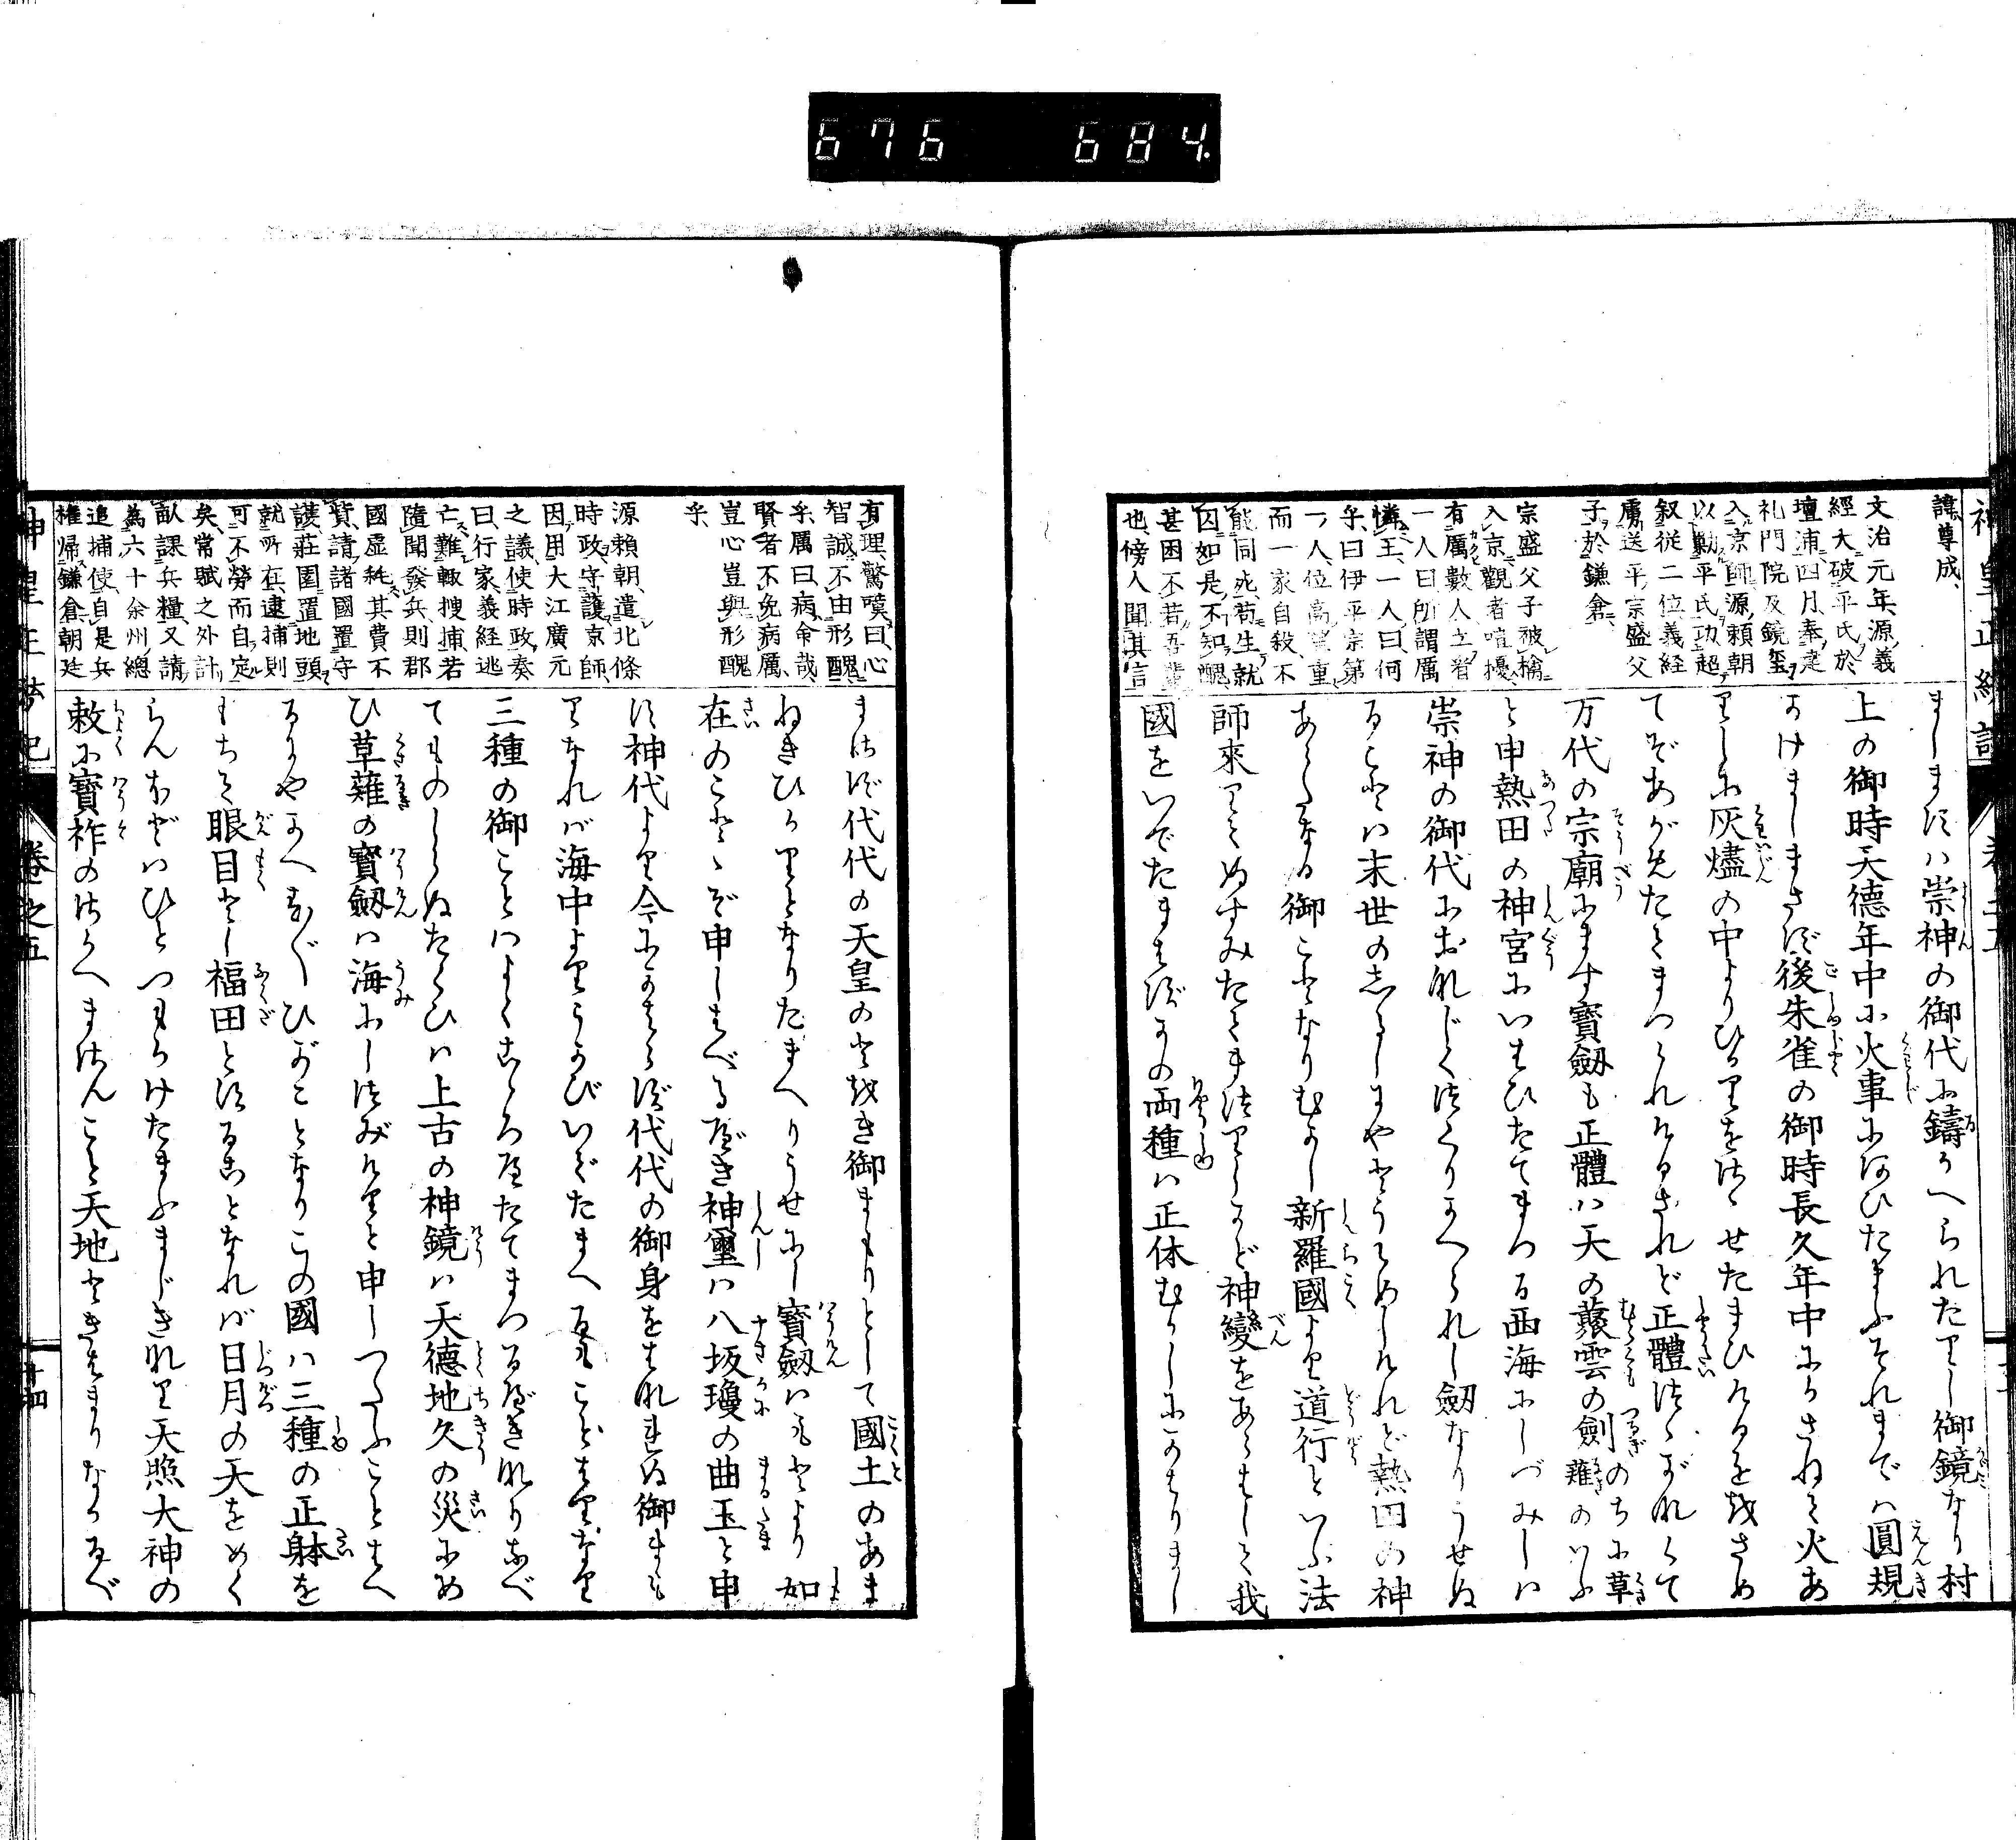 676 684.
諱尊成、
文治元年、源義
經大破平氏於
壇浦四月奉建
礼門院及鏡璽
入京師源頼朝
以勦平氏功超
叙従二位義経
虜送平宗盛父
子於鎌倉
宗盛父子被擒
入京觀者喧擾
有厲數人立者
一人曰所謂厲
憐王一人曰何
乎曰伊平宗第
一人位高望重
而一家自殺不
能同死苟生就
囚如是不知醜
甚困不若吾輩
也傍人聞其言
ましますハ崇神の御代に鑄かへられたりし御鏡なり村
上の御時天德年中に火事にあひたまふそれまでハ圓規
かけましまさず後朱雀の御時長久年中にかさねて火あ
りしに灰燼の中よりひかりをさゝせたまひけるををさめ
てぞあがめたてまつられけるされど正體つゝがなくて
万代の宗廟にまします寶劔も正體ハ天の藂雲の劍のちに草薙のいふ
と申熱田の神宮にいはひたてまつる西海にしづみしハ
崇神の御代におなじくつくりかへられし劔なりうせぬ
ることハ末世のしるしにやとうらめしけれど熱田の神
あらたなる御ことなりむかし新羅國より道行といふ法
師來りてぬすみたてまつりしかど神變をあらはして我
國をいでたまはずかの両種ハ正体むかしにかはりまし
有理、驚嘆曰心
智誠不由形醜
乎厲曰病命哉
賢者不免病厲
豈心豈與形醜
乎、
源頼朝遣北條
時政守護京師
因用大江廣元
之議使時政奏
曰行家義経逃
亡難輙搜捕若
隨聞發兵則郡
國虚耗其費不
貲請諸國置守
護莊園置地頭
就所在逮捕則
可不勞而自定
矣常賦之外計
畝課兵糧又請
為六十余州總
追捕使自是兵
権帰鎌倉朝廷
まさず代代の天皇のとほき御まもりとして國土のあま
ねきひかりとなりたまへりうせにし寶劔ハもとより如
在のことゝぞ申しはべるべき神璽ハ八坂瓊の曲玉と申
す神代より今にかはらず代代の御身をはなれぬ御まも
りなれバ海中よりうかびいでたまへるもことはりなり
三種の御ことハよくこゝろえたてまつるべきなりなべ
てものしらぬたぐひハ上古の神鏡ハ天德地久の災にあ
ひ草薙の寶劔ハ海にしづみけりと申しつたふことはべ
るにやかへすがへすひがことなりこの國ハ三種の正躰を
もちて眼目とし福田とすることなれバ日月の天をめぐ
らんほどハひとつもかけたまふまじきなり天照大神の
敕に寶祚のさかへまさんこと天地ときはまりなかるべ
神皇正統記
卷之五
十四